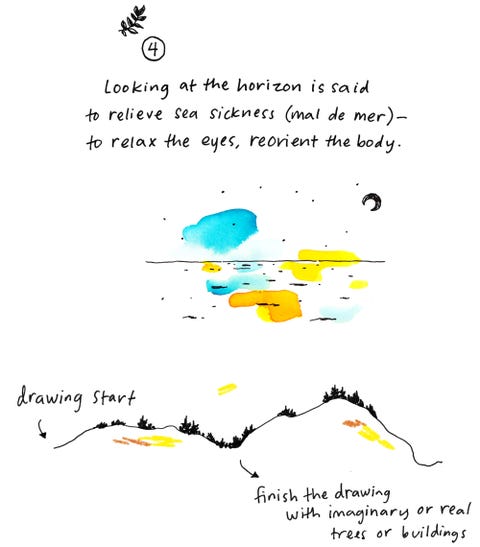 4
Looking at the horizon is said
to relieve sea sickness (mal de mer)—
to relax the eyes, reorient the body.
drawing start
finish the drawing
with imaginary or real
trees or buildings